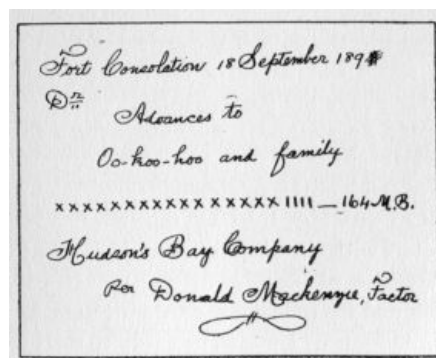 Fort Consolation 18 September 189
Dr
Advances to
Oo-koo-hoo and family
x x x x x x x x x x x x x x x x 1111 — 164 M.B.
Hudson's Bay Company
Per Donald Mackenzie, Factor